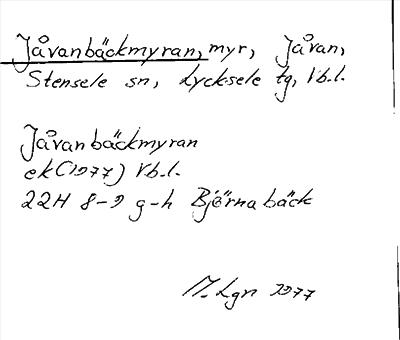 Jåvanbäckmyran, myr, Jåvan,
Stensele sn, Lycksele tg, Vb.l.
Jåvanbäckmyran
ek (1977) Vb.l.
22H 8-9 g-h Bjernabäck
M. Lgn 1977